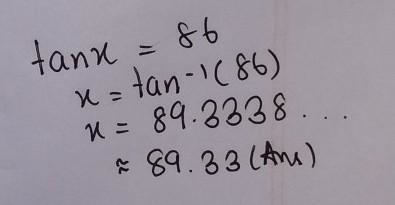 tanx = 86
x = tan⁻¹(86)
x = 89.3338...
≈ 89.33 (Ans)